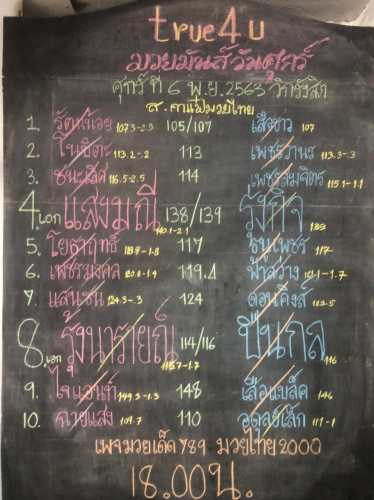 true4u
มวยมันส์วันศุกร์
ศุกร์ที่ 6 พ.ย. 2563 วิกรังสิต
ส.คาเฟ่มวยไทย
1. รัตนน้อย 107.3-2.3 105/107 เสือขาว 107
2. โนบิตะ 113.2-.2 113 เพชรวานร 113.3-.3
3. ชนะเลิศ 115.5-2.5 114 เพชรสมจิตร 115.1-1.1
4.เอก แสงมณี 140.1-2.1 138/139 รุ่งกิจ 139
5. โยธาฤทธิ์ 118.8-1.8 117 ธนูเพชร 117
6. เพชรมงคล 120.8-1.4 119.4 ฟ้าสว่าง 121.1-1.7
7. แสนชน 124.3-.3 124 ดอนคิงส์ 122.5
8.เอก รุ่งนารายณ์ 115.7-1.7 114/116 ปืนกล 116
9. ไดแอนทำ 149.3-1.3 148 เสือแบล็ค 146
10. ฉายแสง 109.7 110 อดุลย์เล็ก 111-1
เพจมวยเด็ด789 มวยไทย2000
18.00น.